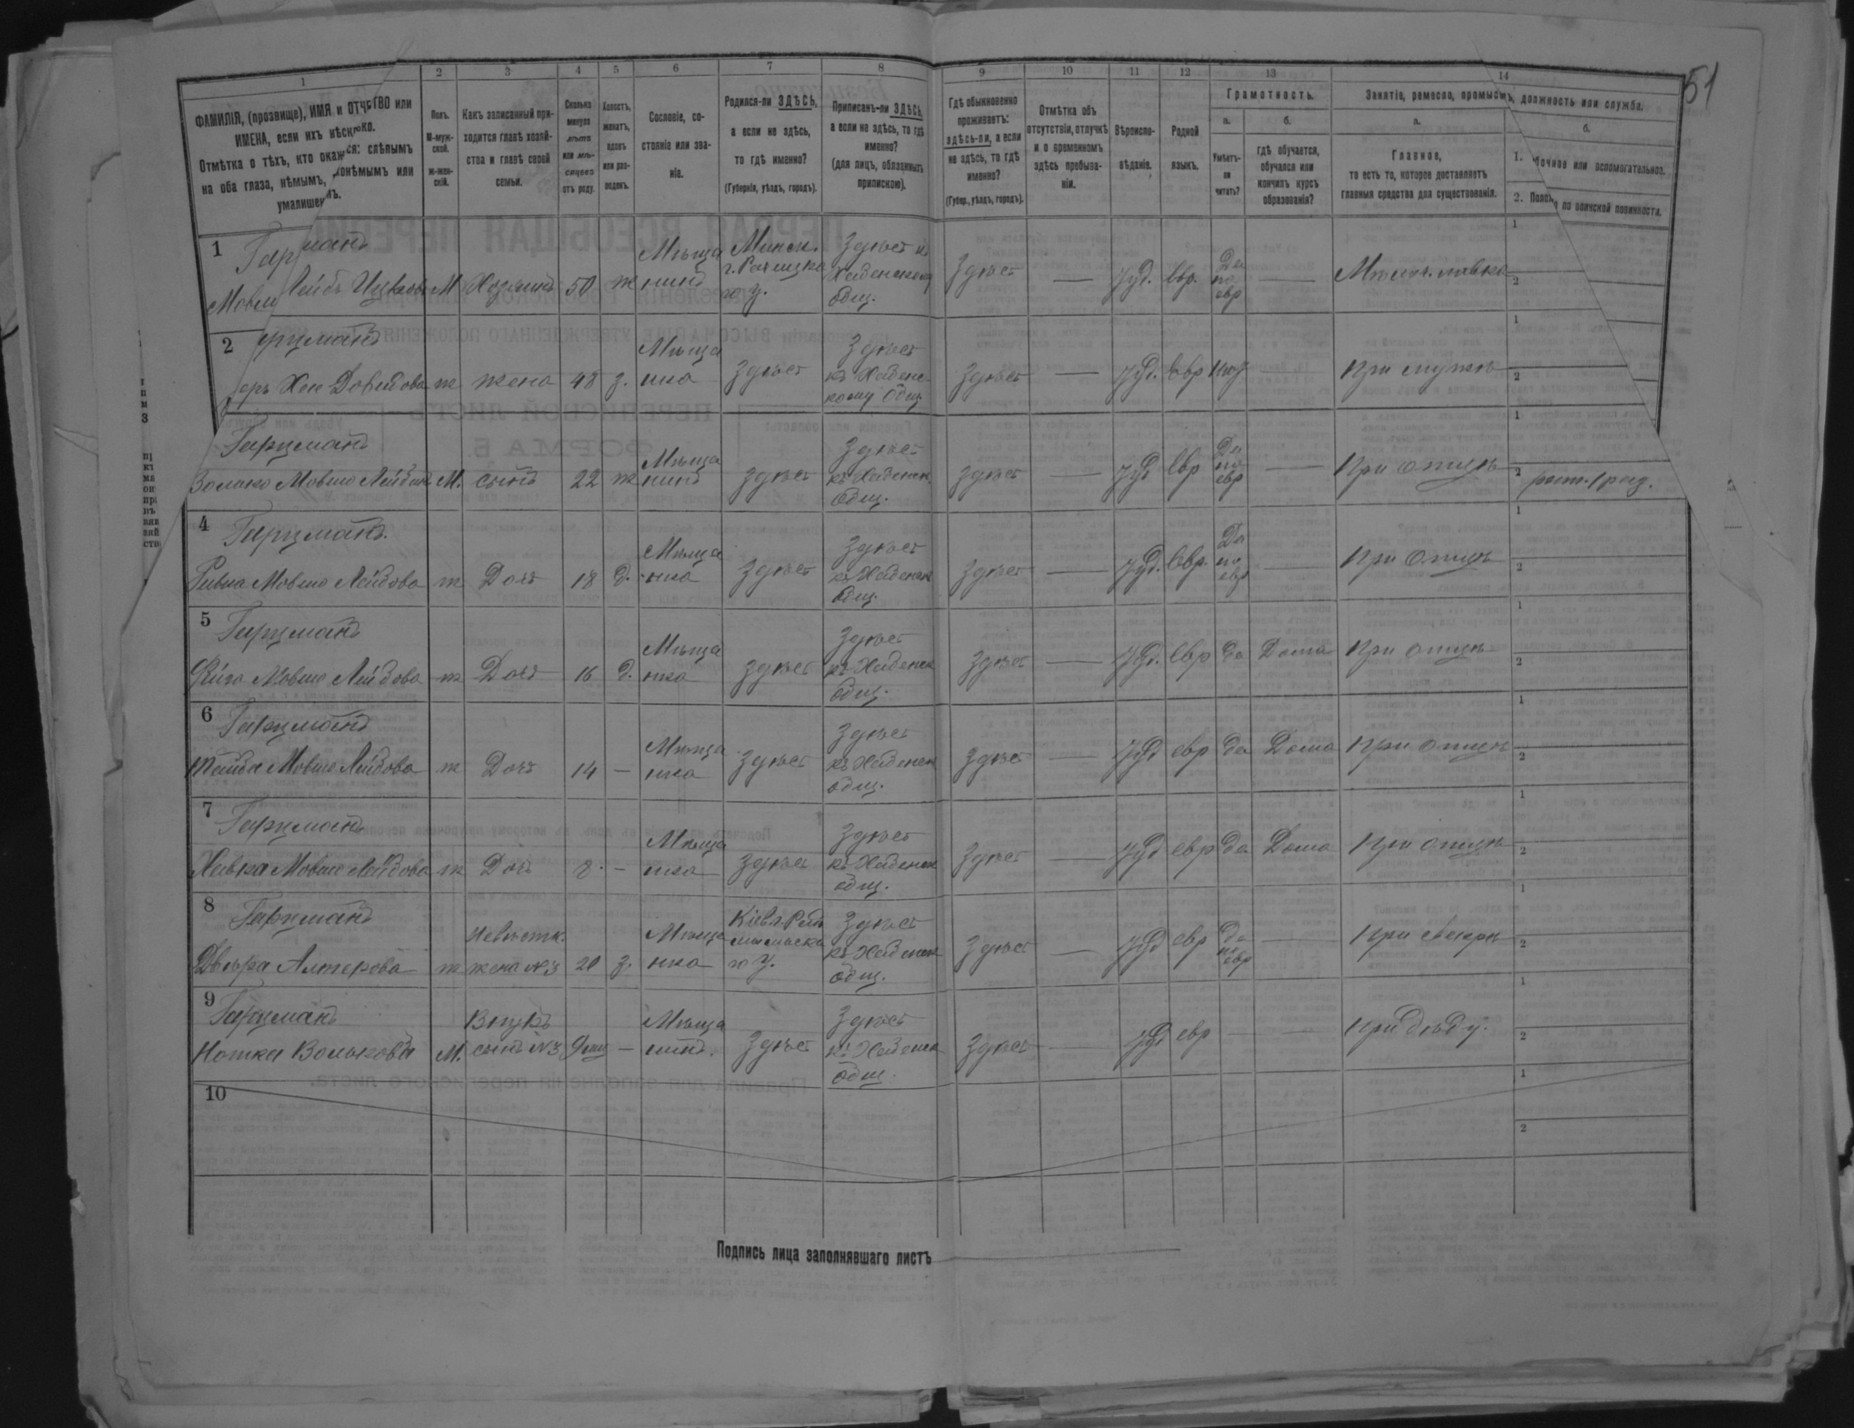 51
1 2 3 4 5 6 7 8 9 10 11 12 13 14
ФАМИЛІЯ, (прозвище), ИМЯ и ОТЧЕСТВО или
ИМЕНА, если ихъ нѣсколько.
Отмѣтка о тѣхъ, кто окажется: слѣпымъ
на оба глаза, нѣмымъ, глухонѣмымъ или
умалишеннымъ.
Полъ.
М-муж-
ской.
ж-жен-
скій.
Какъ записанный при-
ходится главѣ хозяй-
ства и главѣ своей
семьи.
Сколько
минуло
лѣтъ
или мѣ-
сяцевъ
отъ роду.
Холостъ,
женатъ,
вдовъ
или раз-
веденъ.
Сословіе, со-
стояніе или зва-
ніе.
Родился-ли ЗДѢСЬ,
а если не здѣсь,
то гдѣ именно?
(Губернія, уѣздъ, городъ).
Приписанъ-ли ЗДѢСЬ,
а если не здѣсь, то гдѣ
именно?
(для лицъ, обязанныхъ
припискою).
Гдѣ обыкновенно
проживаетъ:
здѣсь-ли, а если
не здѣсь, то гдѣ
именно?
(Губер., уѣздъ, городъ).
Отмѣтка объ
отсутствіи, отлучкѣ
и о временномъ
здѣсь пребыва-
ніи.
Вѣроиспо-
вѣданіе.
Родной
языкъ.
Грамотность.
а.
Умѣетъ-
ли
читать?
б.
гдѣ обучается,
обучался или
кончилъ курсъ
образованія?
Занятіе, ремесло, промыселъ, должность или служба.
а.
Главное,
то есть то, которое доставляетъ
главныя средства для существованія.
б.
1. Побочное или вспомогательное.
2. Положеніе по воинской повинности.
1 Гарцманъ
Мовша Лейбъ Ицковъ М Хозяинъ 50 ж Мѣща нинъ Минск. г. Рѣчицка го у. Здѣсь къ Хабенскому общ. Здѣсь — Іуд. Евр. Да по евр — Мѣлоч. лавка
2 Гарцманъ
Хая Довидова ж жена 48 з. Мѣща нка Здѣсь Здѣсь къ Хабенс кому Общ Здѣсь — Іуд. Евр нѣт При мужѣ
Гарцманъ
Волько Мовшо Лейбов М. сынъ 22 ж Мѣща нинъ Здѣсь Здѣсь къ Хабенск общ. Здѣсь — Іуд Евр Да по евр — При отцѣ 2 рат. 1 раз.
4 Гарцманъ.
Ривка Мовшо Лейбова ж Дочь 18 д. Мѣща нка Здѣсь Здѣсь къ Хабенск общ. Здѣсь — Іуд. Евр. Да по евр — При отцѣ
5 Гарцманъ
Фейга Мовше Лейбова ж Дочь 16 д. Мѣща нка Здѣсь Здѣсь къ Хабенск общ. Здѣсь — Іуд. Евр да Дома При отцѣ
6 Гарцманъ
Мовше Лейбова ж Дочь 14 — Мѣща нка Здѣсь Здѣсь къ Хабенск общ. Здѣсь — Іуд евр да Дома При отцѣ
7 Гарцманъ
Хавка Мовше Лейбова ж Дочь 8. — Мѣща нка Здѣсь Здѣсь къ Хабенск общ. Здѣсь — Іуд евр да Дома При отцѣ
8 Гарцманъ
Двейра Алтерова ж Невѣстк. жена №3 20 з. Мѣща нка Кіев. Радо мысльска го у. Здѣсь къ Хабенск общ. Здѣсь — Іуд евр да по евр — При свекрѣ
9 Гарцманъ
Нотка Вольковъ М. Внукъ сынъ №3 9 мц — Мѣща нинъ. Здѣсь Здѣсь къ Хабенск общ. Здѣсь — Іуд евр — — При дѣду.
10
Подпись лица заполнявшаго листъ